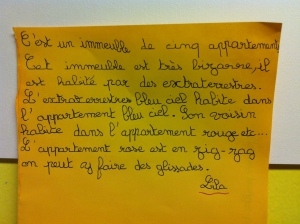 C'est un immeuble de cinq appartements
Cet immeuble est très bizarre, il
est habité par des extraterrestres.
L'extraterrestres bleu ciel habite dans
l'appartement bleu ciel. Son voisin
habite dans l'appartement rouge etc...
L'appartement rose est en zig-zag
on peut y faire des glissades.
Lila